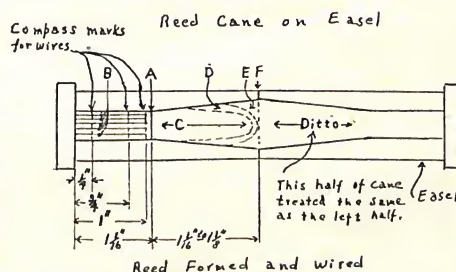 Reed Cane on Easel
Compass marks
for wires
A
B
D
E F
C
Ditto
Easel
This half of cane
treated the same
as the left half.
1/4"
3/4"
1"
1 1/16"
1 1/16" to 1 1/8"
Reed Formed and Wired